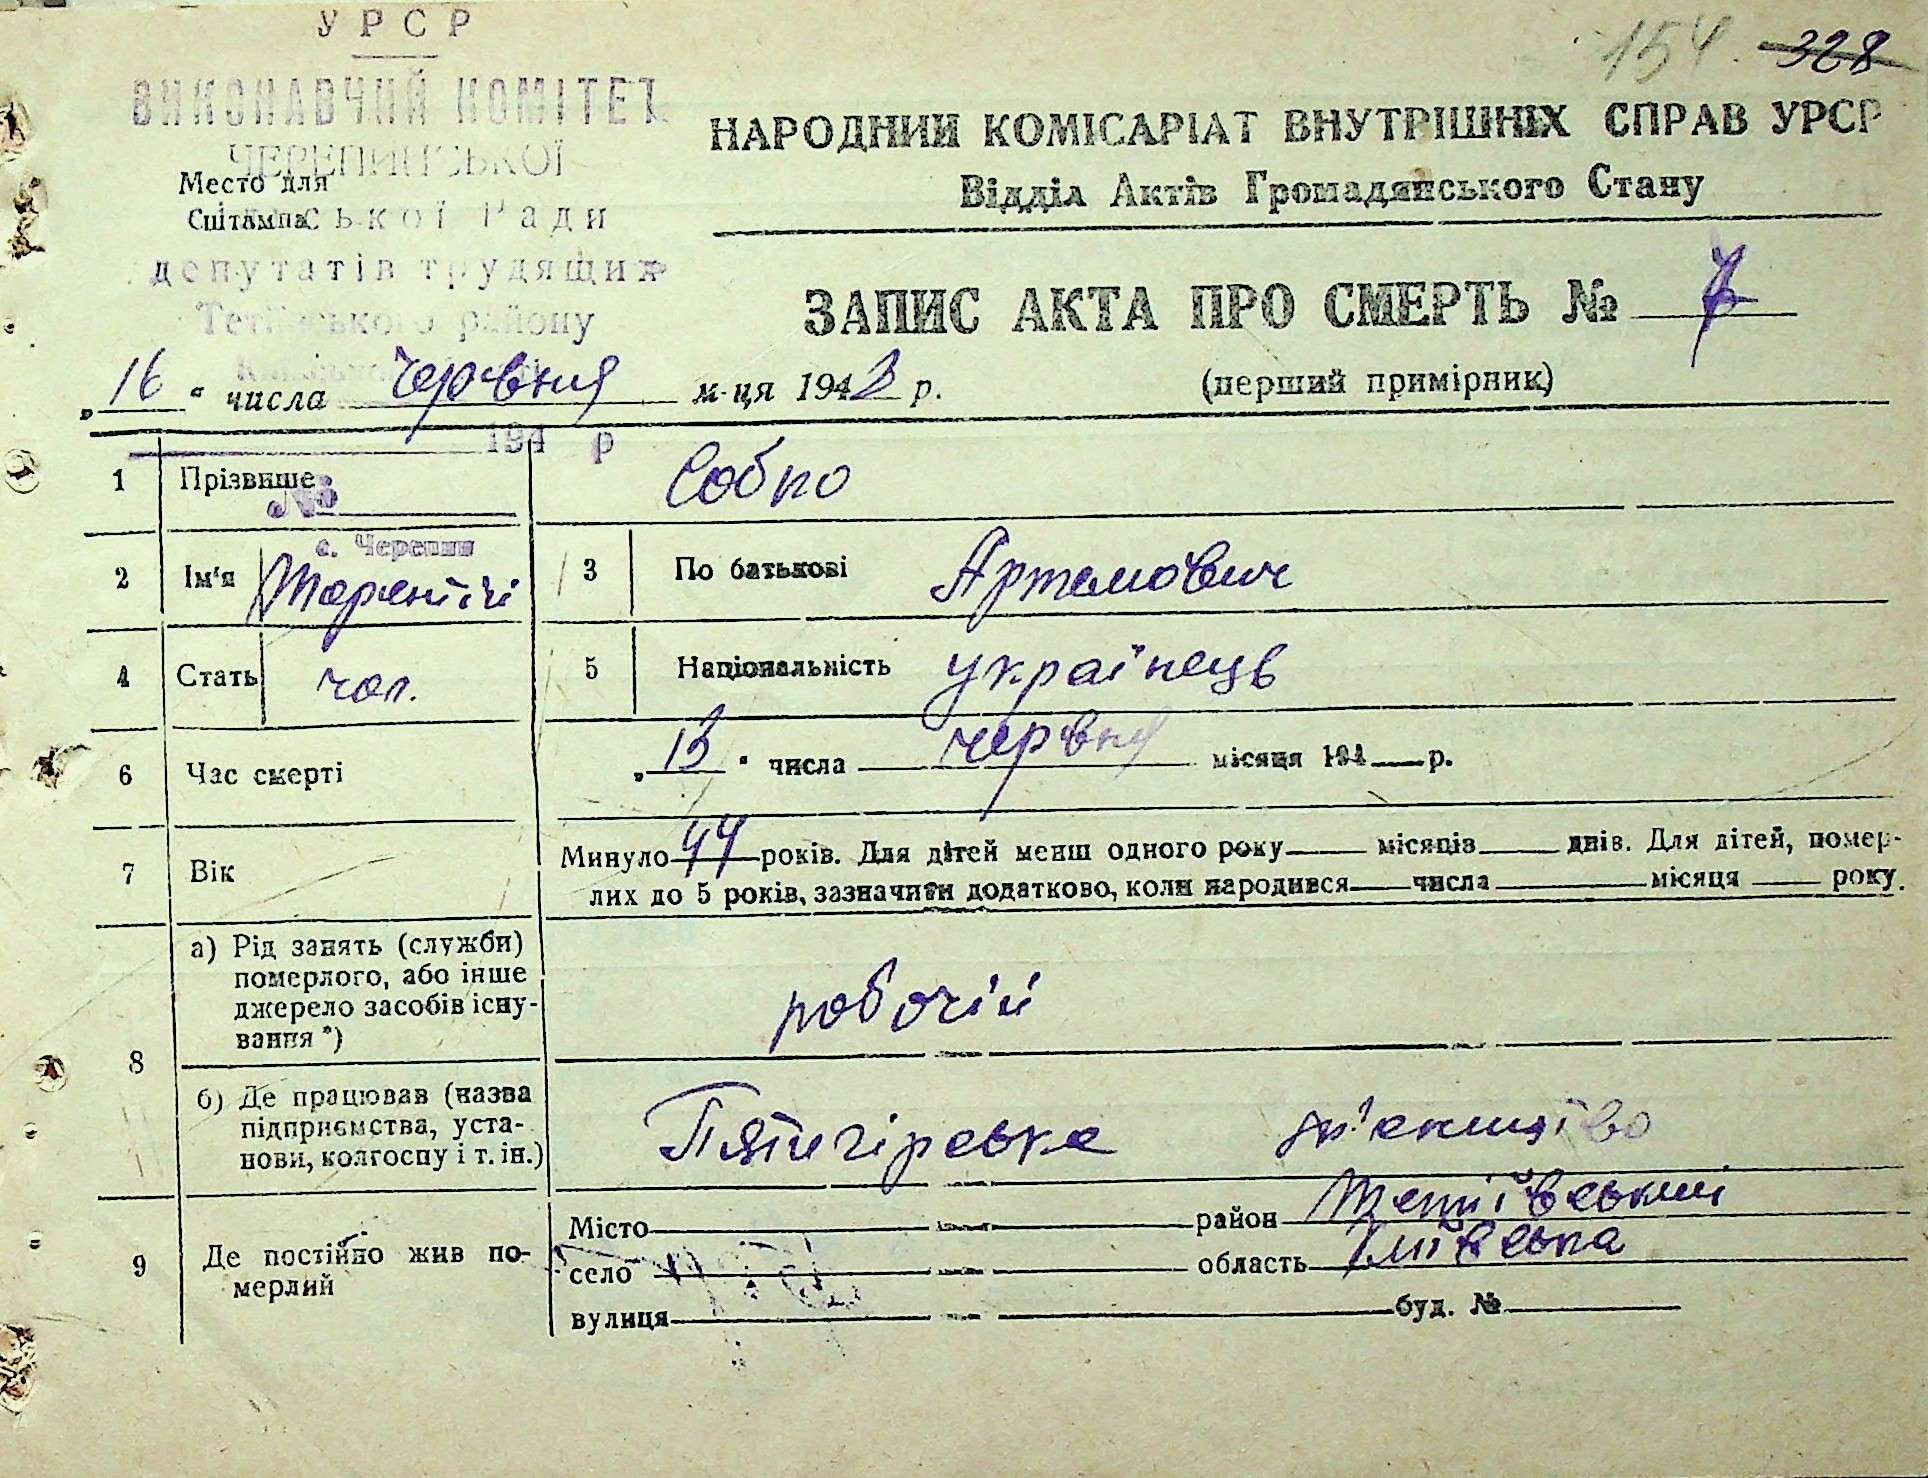 УРСР
154 328
ВИКОНАВЧИЙ КОМІТЕТ
НАРОДНИЙ КОМІСАРІАТ ВНУТРІШНІХ СПРАВ УРСР
ЧЕРЕПИНСЬКОЇ
Место для
Відділ Актів Громадянського Стану
Сштампа ської Ради
депутатів трудящих
ЗАПИС АКТА ПРО СМЕРТЬ № 7
Тетіївського району
„16“ числа червня м-ця 1943 р. (перший примірник)
194 р
1 Прізвище Собко
№
с. Черепин
2 Ім'я 3 По батькові Артемович
4 Стать чол. 5 Національність українець
6 Час смерті „13“ числа червня місяця 194 р.
7 Вік Минуло 44 років. Для дітей менш одного року місяців днів. Для дітей, помер-
лих до 5 років, зазначити додатково, коли народився числа місяця року.
8 а) Рід занять (служби)
померлого, або інше
джерело засобів існу-
вання *) робочій
б) Де працював (назва
підприємства, уста-
нови, колгоспу і т. ін.) Пятигірське
9 Де постійно жив по-
мерлий
Місто район Тетіївський
село область Київська
вулиця буд. №